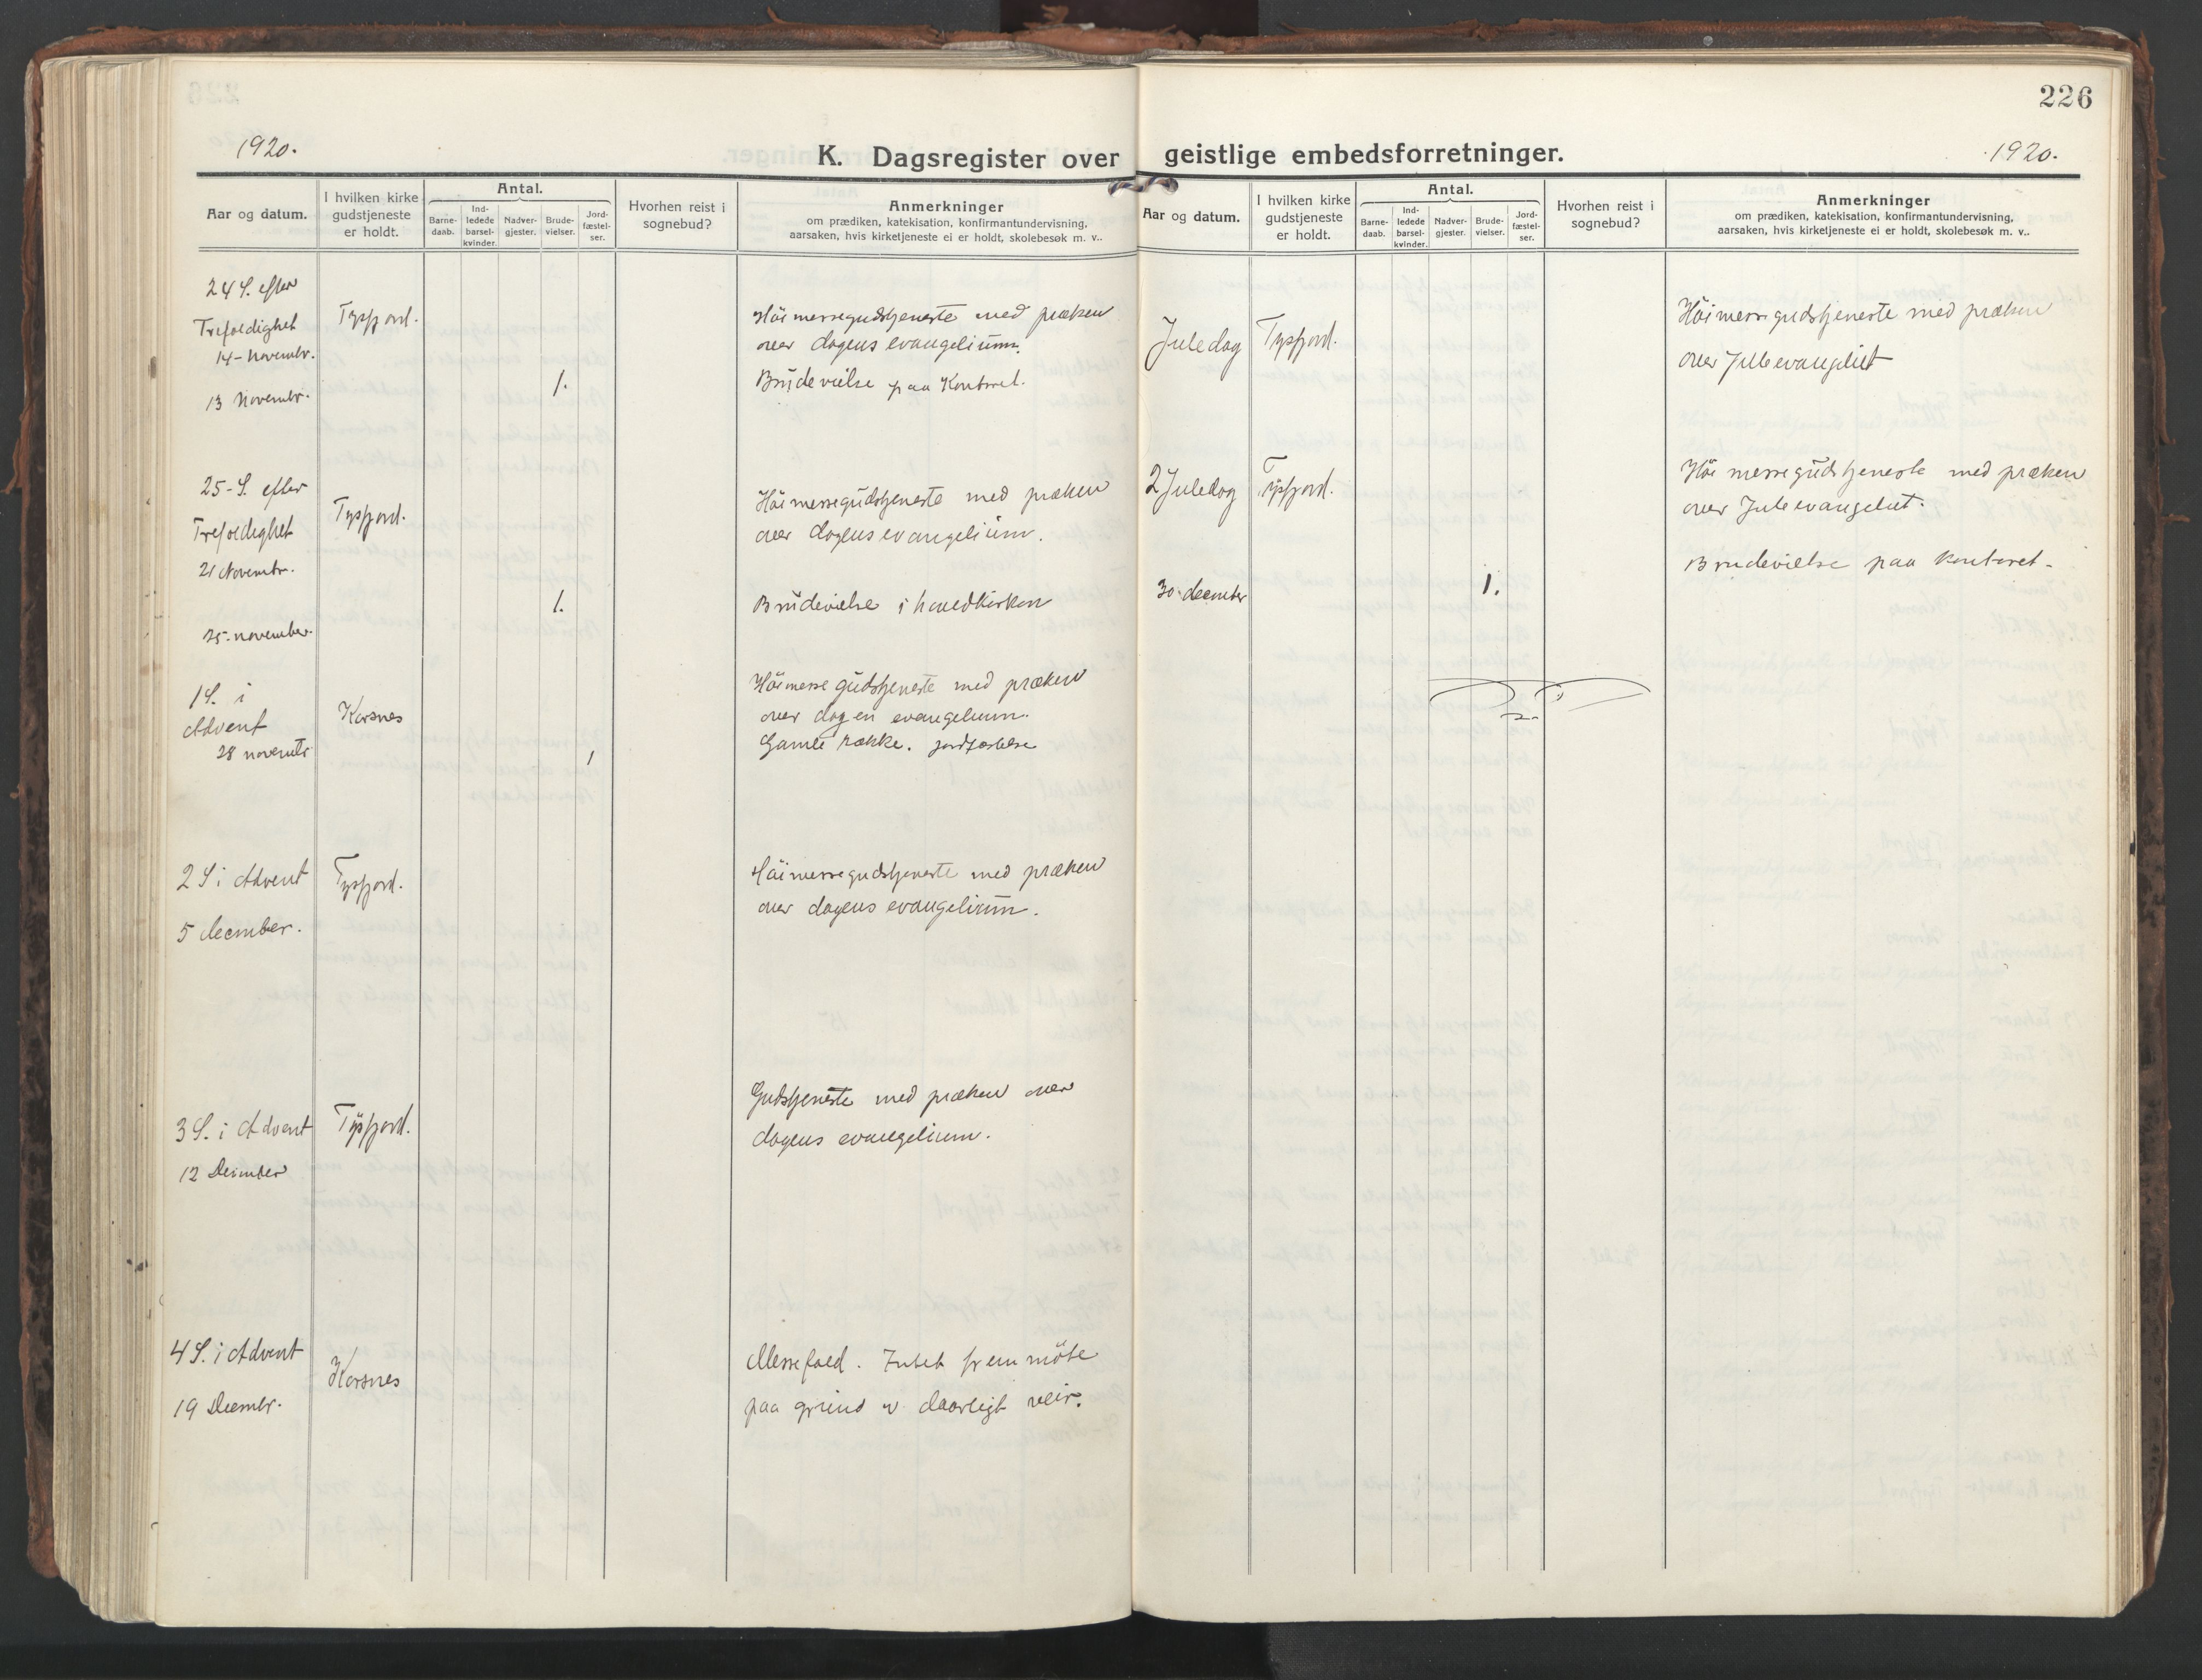 226
1920.
K. Dagsregister over geistlige embedsforretninger.
1920.
Aar og datum.
I hvilken kirke gudstjeneste er holdt.
Antal.
Barne-daab.
Ind-ledede barsel-kvinder.
Nadver-gjester.
Brude-vielser.
Jord-fæstel-ser.
Hvorhen reist i sognebud?
Anmerkninger
om prædiken, katekisation, konfirmantundervisning,
aarsaken, hvis kirketjeneste ei er holdt, skolebesøk m. v..
24 S. efter
Trefoldighet
14 - Novembr.
Tysfjord.
Höimessegudstjeneste med præken
over dagens evangelium.
13 Novembr.
1.
Brüdevielse paa Kontoret.
25 - S. efter
Trefoldighet
21 Novembr.
Tysfjord.
Höimessegüdstjeneste med præken
over dagens evangelium.
25. november.
1.
Brüdevielse i hovedkirken
1 S. i
Advent
28 novembr
Korsnes
1
Höimesse güdstjeneste med præken
over dagen evangelium.
Gamle række. jordfæstelse
2 S i Advent
5 december.
Tysfjord.
Höimessegudstjeneste med præken
over dagens evangelium.
3 S. i Advent
12 December
Tysfjord.
Gudstjeneste med præken over
dagens evangelium.
4 S. i Advent
19 Decembr.
Korsnes
Messefald. Intet fremmöte
paa grund av daarligt veir.
Aar og datum.
I hvilken kirke gudstjeneste er holdt.
Antal.
Barne-daab.
Ind-ledede barsel-kvinder.
Nadver-gjester.
Brude-vielser.
Jord-fæstel-ser.
Hvorhen reist i sognebud?
Anmerkninger
om prædiken, katekisation, konfirmantundervisning,
aarsaken, hvis kirketjeneste ei er holdt, skolebesøk m. v..
Juledag
Tysfjord.
Höimessegudstjeneste med præken
over Juleevangeliet
2 Juledag
Tysfjord.
Höimessegüdstjeneste med præken
over Juleevangeliet.
30. december
1.
Brudevielse paa Kontoret.